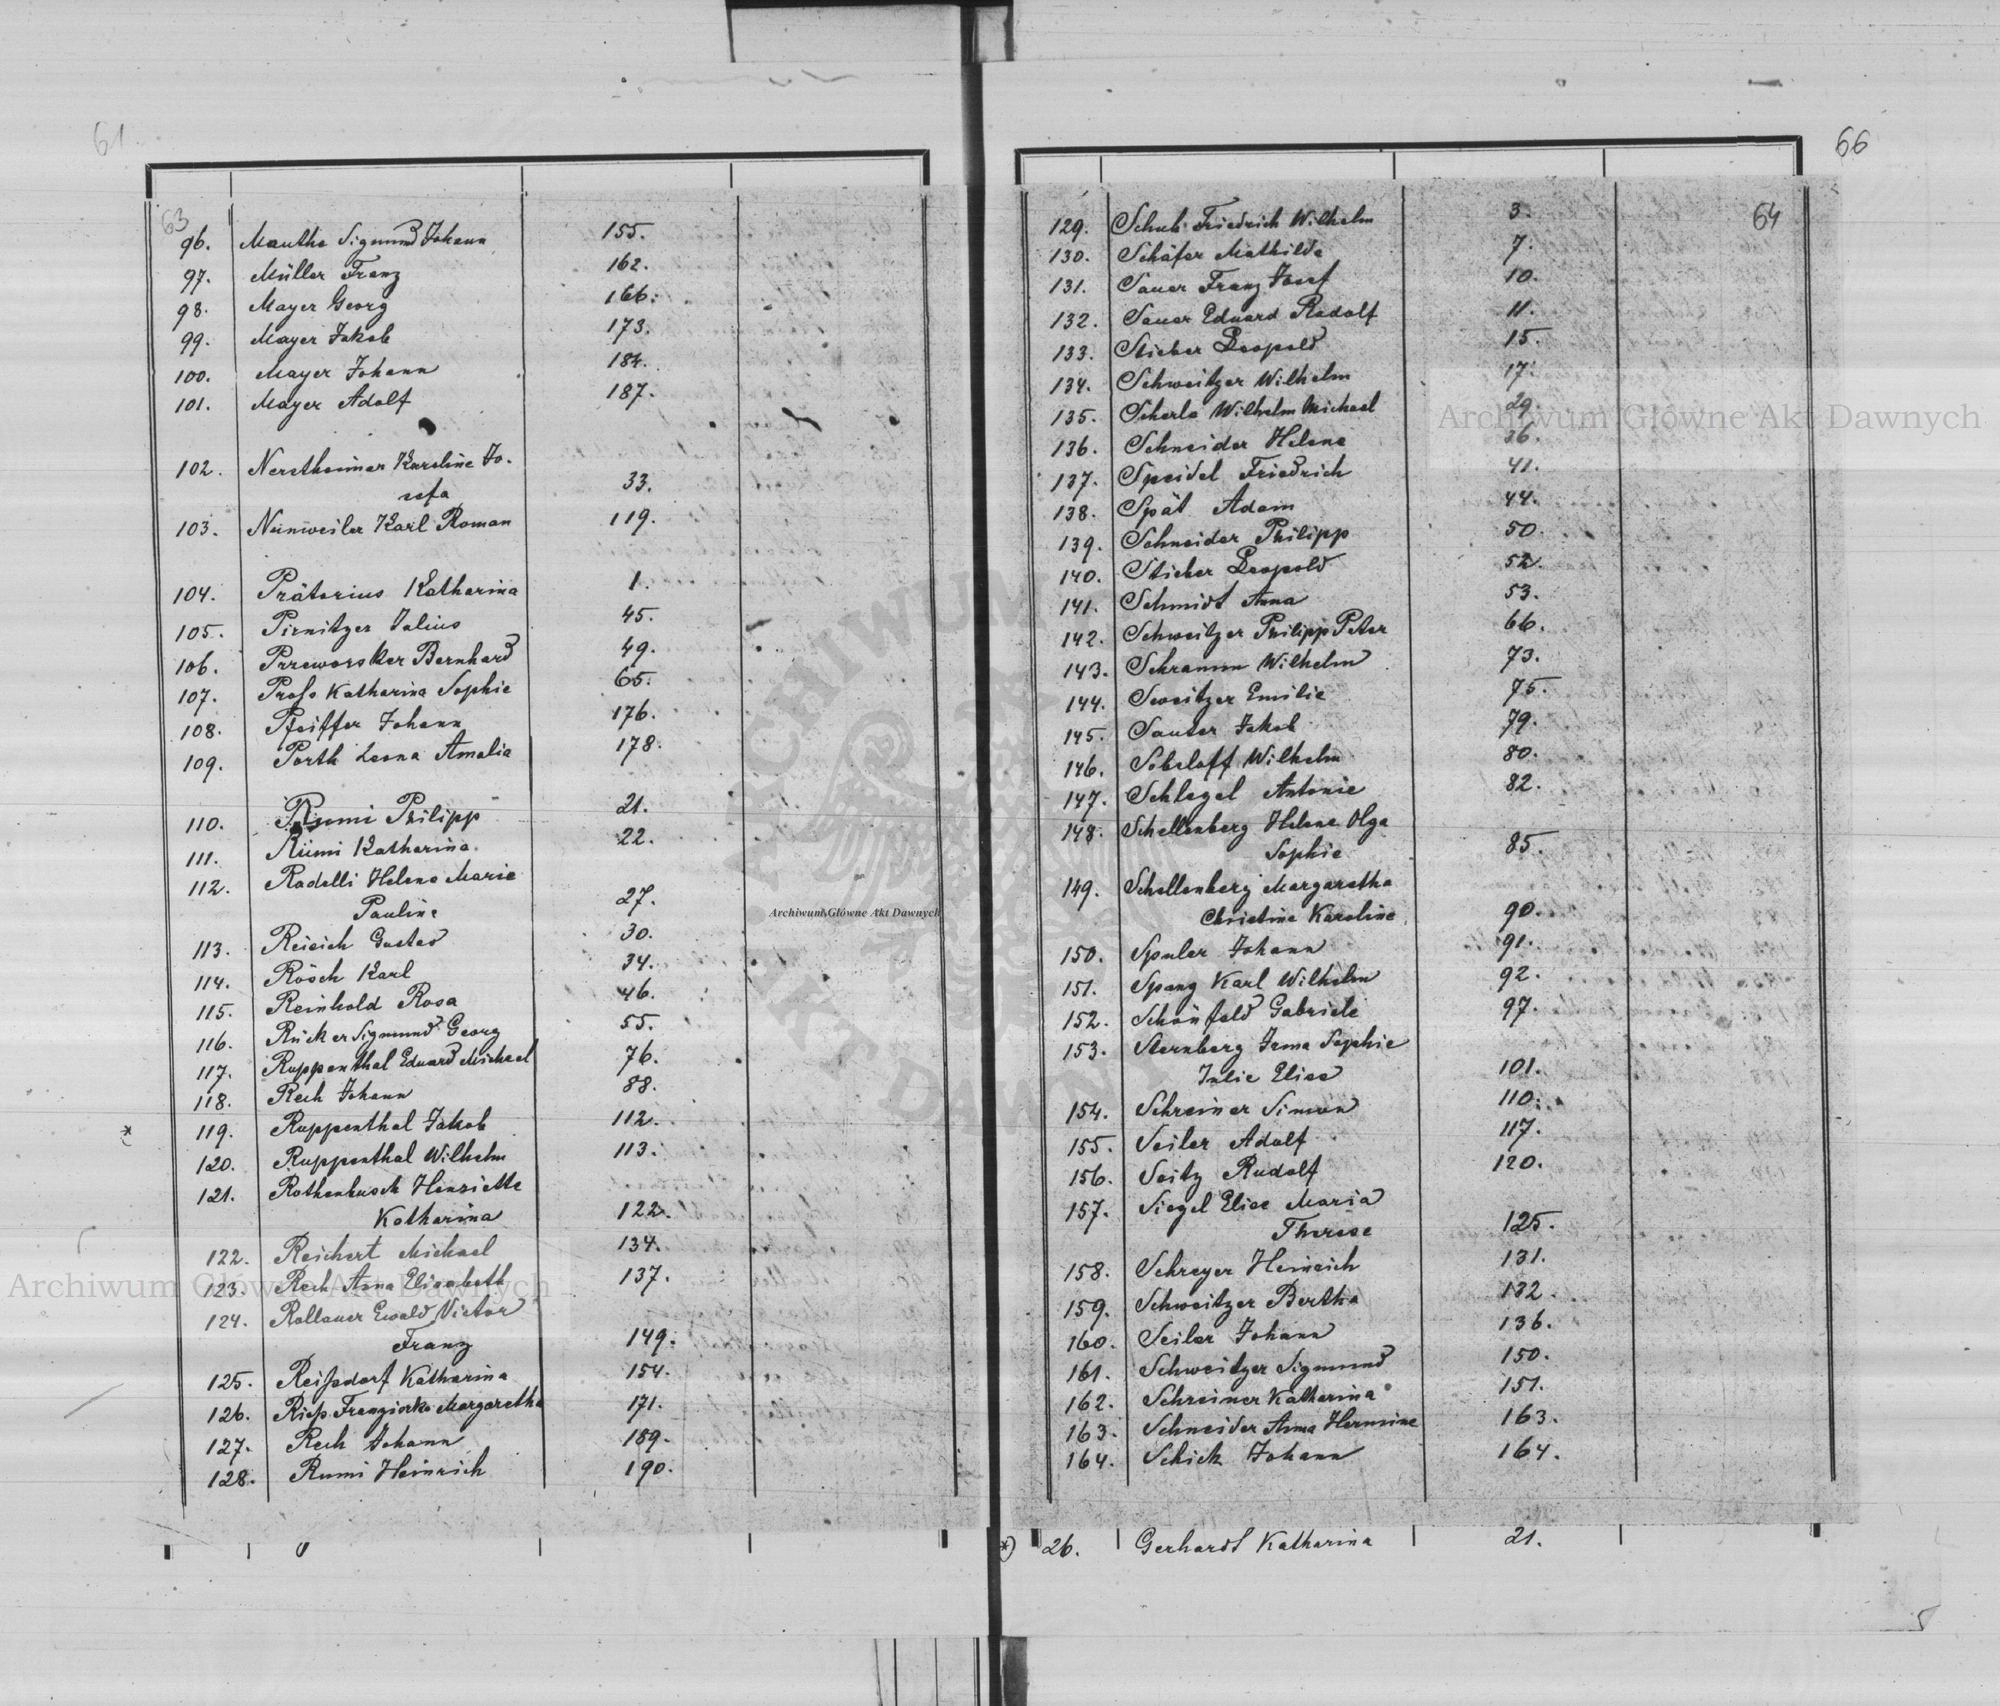 61
63
96. Mautha Sigmund Johann 155.
97. Müller Franz 162.
98. Mayer Georg 166.
99. Mayer Jakob 173.
100. Mayer Johann 184.
101. Mayer Adolf 187.
102. Nerstheimer Karoline Jo-
sefa 33.
103. Nunweiler Karl Roman 119.
104. Prätorius Katharina 1.
105. Pirnitzer Julius 45.
106. Przeworsker Bernhard 49.
107. Profs Katharina Sophie 65.
108. Pfeiffer Johann 176.
109. Porth Leona Amalia 178.
110. Rumi Philipp 21.
111. Rümi Katharina 22.
112. Radelli Helene Marie
Pauline 27.
113. Reisich Gustav 30.
114. Rösch Karl 34.
115. Reinhold Rosa 46.
116. Rücker Sigmund Georg 55.
117. Ruppenthal Eduard Michael 76.
118. Rech Johann 88.
* 119. Ruppenthal Jakob 112.
120. Ruppenthal Wilhelm 113.
121. Rothenbusch Henriette
Katharina 122.
122. Reichert Michael 134.
123. Rech Anna Elisabeth 137.
124. Rollauer Ewald Victor
Franz 149.
125. Reißdorf Katharina 154.
126. Rieß Franziska Margaretha 171.
127. Rech Johann 189.
128. Rumi Heinrich 190.
66
64
129. Schub Friedrich Wilhelm 3.
130. Schäfer Mathilde 7.
131. Sauer Franz Josef 10.
132. Sauer Eduard Rudolf 11.
133. Stieber Leopold 15.
134. Schweitzer Wilhelm 17.
135. Scherla Wilhelm Michael 29
136. Schneider Helene 36.
137. Speidel Friedrich 41.
138. Spät Adam 44.
139. Schneider Philipp 50.
140. Stieber Leopold 52.
141. Schmidt Anna 53.
142. Schweitzer Philipp Peter 66.
143. Schramm Wilhelm 73.
144. Sweitzer Emilie 75.
145. Sauter Jakob 79.
146. Sobeloff Wilhelm 80.
147. Schlegel Antonie 82.
148. Schellenberg Helene Olga
Sophie 85.
149. Schellenberg Margaretha
Christine Karoline 90.
150. Spuler Johann 91.
151. Spang Karl Wilhelm 92.
152. Schönfeld Gabriele 97.
153. Sternberg Irma Sophie
Julie Elise 101.
154. Schreiner Simon 110.
155. Seiler Adolf 117.
156. Seitz Rudolf 120.
157. Siegel Elise Maria
Therese 125.
158. Schreyer Heinrich 131.
159. Schweitzer Bertha 132
160. Seiler Johann 136.
161. Schweitzer Sigmund 150.
162. Schreiner Katharina 151.
163. Schneider Anna Hermine 163.
164. Schick Johann 164.
*) 26. Gerhardt Katharina 21.
Archiwum Główne Akt Dawnych
Archiwum Główne Akt Dawnych
Archiwum Główne Akt Dawnych